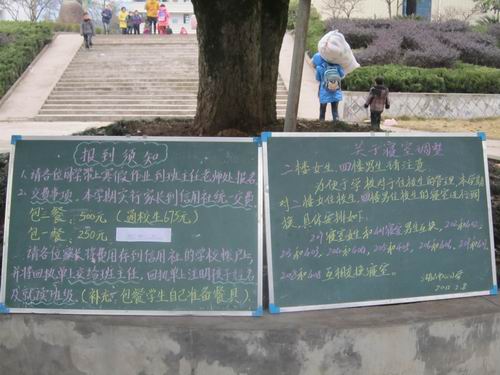 报到须知
1、请各位同学带上寒假作业到班主任老师处报名。
2、交费事项。本学期实行家长到信用社统一交费
包三餐：500元（通校生675元）
包一餐：250元
请各位家长将费用存到信用社的学校帐户上
并将回执单上交给班主任，回执单上注明孩子姓名
及就读班级（补充：包餐学生自己准备餐具）。
关于寝室调整
二楼女生、四楼男生请注意
为便于学校对于住校生的管理，本学期
对二楼女住校生、四楼男住校生的寝室进行调
换，具体安排如下：
互相交换寝室。